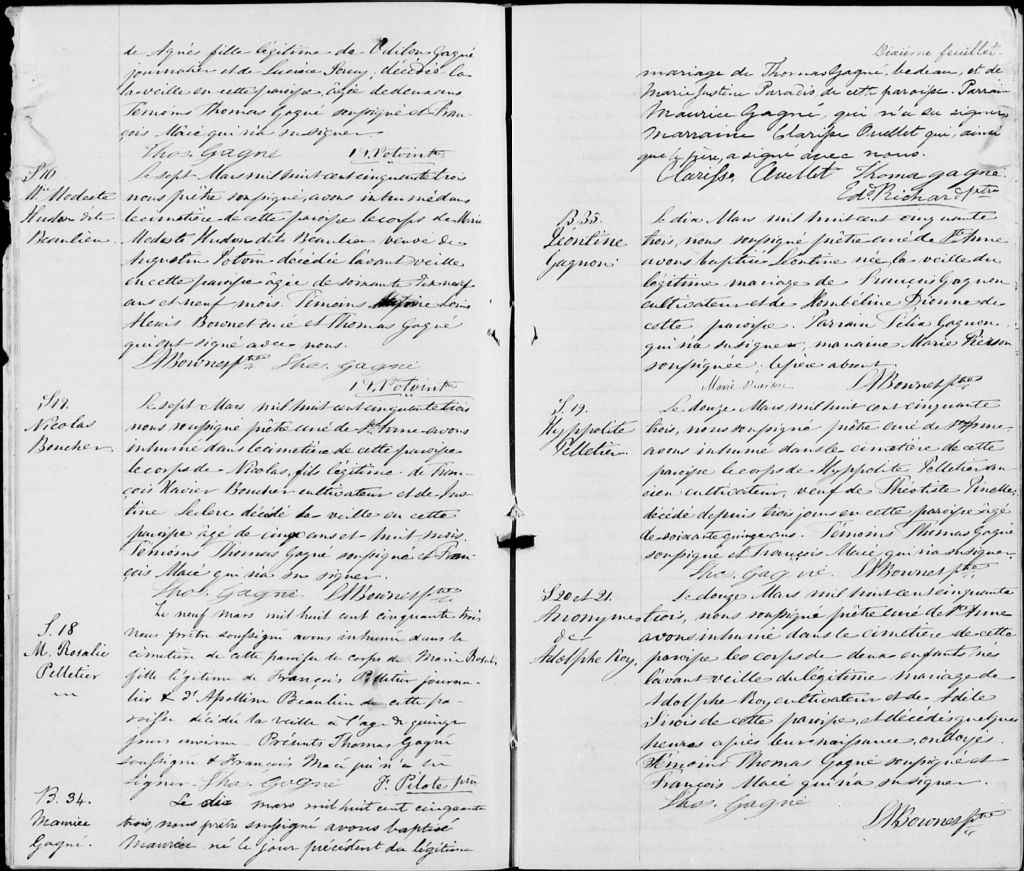 de Agnès fille légitime de Odilon Gagné
journalier et de Lucière décédée la
la veille en cette paroisse, âgée de deux ans
Témoins Thomas Gagné soussigné et Fran
çois Macé qui n'a su signer.
Thos. Gagné N. Potvin ptre
S 16
M. Modeste
Hudon dite
Beaulieu.
Le sept Mars mil huit cent cinquante trois
nous prêtre soussigné, avons inhumé dans
le cimetière de cette paroisse le corps de Marie
Modeste Hudon dite Beaulieu veuve de
Augustin Potvin décédée l'avant veille
en cette paroisse âgée de soixante dix neuf
ans et neuf mois. Témoins Louis
Alexis Bournet curé et Thomas Gagné
qui ont signé avec nous.
LABournet ptre Thos. Gagné
N. Potvin ptre
S 17.
Nicolas
Boucher
Le sept Mars, mil huit cent cinquante trois
nous soussigné prêtre curé de Ste Anne avons
inhumé dans le cimetière de cette paroisse
le corps de Nicolas, fils légitime de Fran
çois Xavier Boucher cultivateur et de Jus
tine Leclerc décédé la veille en cette
paroisse âgé de cinq ans et huit mois.
Témoins Thomas Gagné soussigné et Fran
çois Macé qui n'a su signer.
Thos. Gagné LABournet ptre
S. 18
M. Rosalie
Pelletier
Le neuf mars mil huit cent cinquante trois
nous prêtre soussigné avons inhumé dans le
cimetière de cette paroisse le corps de Marie Rosalie
fille légitime de François Pelletier journa-
lier & d'Apolline Beaulieu de cette pa-
roisse décédée la veille à l'age de quinze
jours environ. Présents Thomas Gagné
soussigné & François Macé qui n'a su
signer. Thos. Gagné F. Pilote ptre
B. 34.
Maurice
Gagné.
Le dix mars mil huit cent cinquante
trois, nous prêtre soussigné avons baptisé
Maurice né le jour précédent du légitime
Dixième feuillet
mariage de Thomas Gagné, bedeau, et de
Marie Justine Paradis de cette paroisse. Parrain
Maurice Gagné, qui n'a su signer
marraine Clarisse Ouellet qui, ainsi
que le père, a signé avec nous.
Clarisse Ouellet Thoma gagné
Edd Richard ptre
B 35.
Léontine
Gagnon
Le dix Mars mil huit cent cinquante
trois, nous soussigné prêtre curé de Ste Anne
avons baptisé Léontine née la veille du
légitime mariage de François Gagnon
cultivateur et de Hombéline Dionne de
cette paroisse. Parrain Félix Gagnon
qui n'a su signer, marraine Marie
soussignée; le père absent.
Marie LABournet ptre
S. 19.
Hyppolite
Pelletier
Le douze Mars mil huit cent cinquante
trois, nous soussigné prêtre curé de Ste Anne
avons inhumé dans le cimetière de cette
paroisse le corps de Hyppolite Pelletier an
cien cultivateur, veuf de Théotiste Pinelle,
décédé depuis trois jours en cette paroisse âgé
de soixante quinze ans. Témoins Thomas Gagné
soussigné et François Macé qui n'a su signer
Thos. Gagné LABournet ptre
S 20 et 21.
Anonymes
de
Adolphe Roy.
Le douze Mars mil huit cent cinquante
trois, nous soussigné prêtre curé de Ste Anne
avons inhumé dans le cimetière de cette
paroisse les corps de deux enfants nés
l'avant veille du légitime mariage de
Adolphe Roy cultivateur et de Adèle
Sirois de cette paroisse, et décédés quelques
heures après leur naissance, ondoyés.
Témoins Thomas Gagné soussigné et
François Macé qui n'a su signer.
Thos. Gagné
LABournet ptre